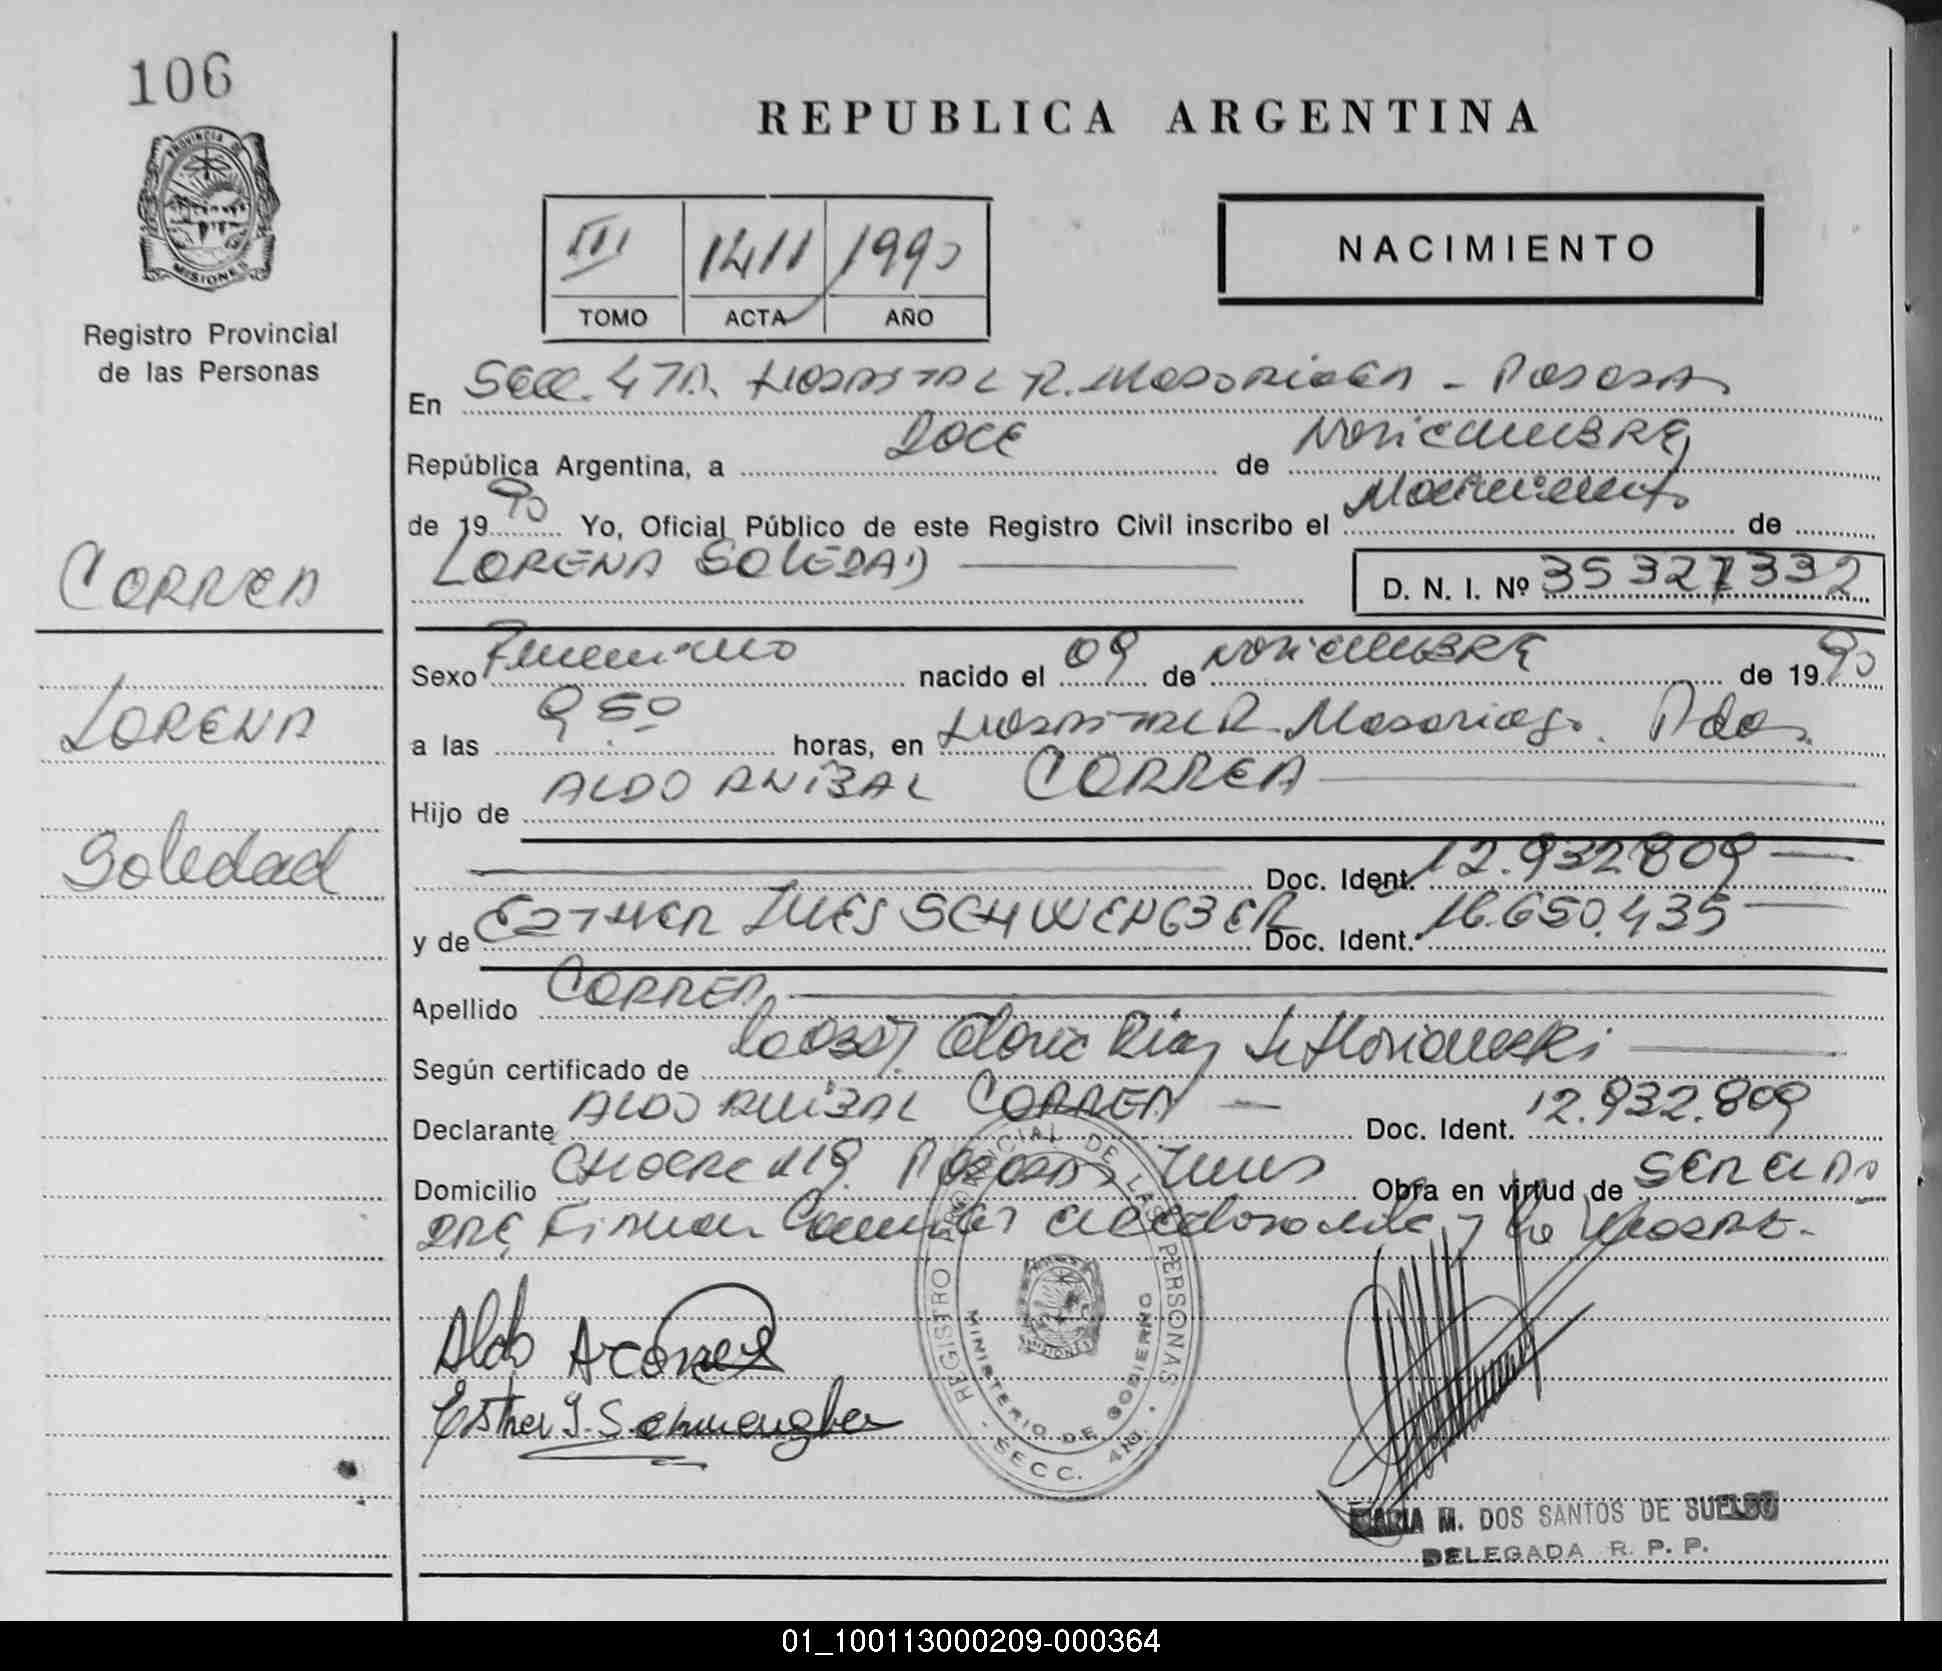 106
PROVINCIA DE
MISIONES
Registro Provincial
de las Personas
CORREA
LORENA
Soledad
REPUBLICA ARGENTINA
III 1411 1990
TOMO ACTA AÑO
NACIMIENTO
En Secc. 4TA. HOSPITAL R. MADARIAGA - POSADAS
República Argentina, a DOCE de NOVIEMBRE
de 1990 Yo, Oficial Público de este Registro Civil inscribo el Nacimiento de
LORENA SOLEDAD D. N. I. Nº 35327332
Sexo Femenino nacido el 09 de NOVIEMBRE de 1990
a las 9.50 horas, en HOSPITAL R. Madariaga. Pdas.
Hijo de ALDO ANIBAL CORREA
Doc. Ident. 12.932.809
y de ESTHER INES SCHWENGBER Doc. Ident. 16.650.435
Apellido CORREA
Según certificado de Gloria Diaz de
Declarante ALDO ANIBAL CORREA Doc. Ident. 12.932.809
Domicilio CHACRA 119. POSADAS Mnes Obra en virtud de SER EL PA
DRE, Firman el declarante y la MADRE.
Aldo A Correa
Esther I. Schwengber
REGISTRO PROVINCIAL DE LAS PERSONAS
MINISTERIO DE GOBIERNO
MISIONES
- SECC. 4ta. -
MARIA M. DOS SANTOS DE SUELDO
DELEGADA R. P. P.
01_100113000209-000364